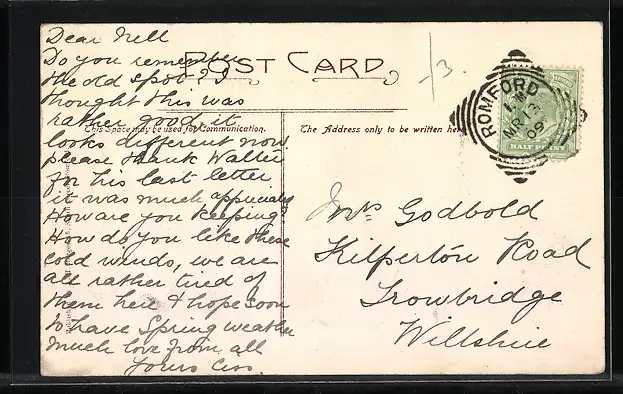 Dear Nell
Do you remember
the old spot? I
thought this was
rather good, it
looks different now
please thank Walter
for his last letter
it was much appreciated
How are you keeping?
How do you like these
cold winds, we are
all rather tired of
them here & hope soon
to have Spring weather
Much love from all
Yours
POST CARD.
This Space may be used for Communication.
The Address only to be written here
/3.
ROMFORD
MR 13
09
HALF PENNY
Mrs Godbold
Hilperton Road
Trowbridge
Wiltshire